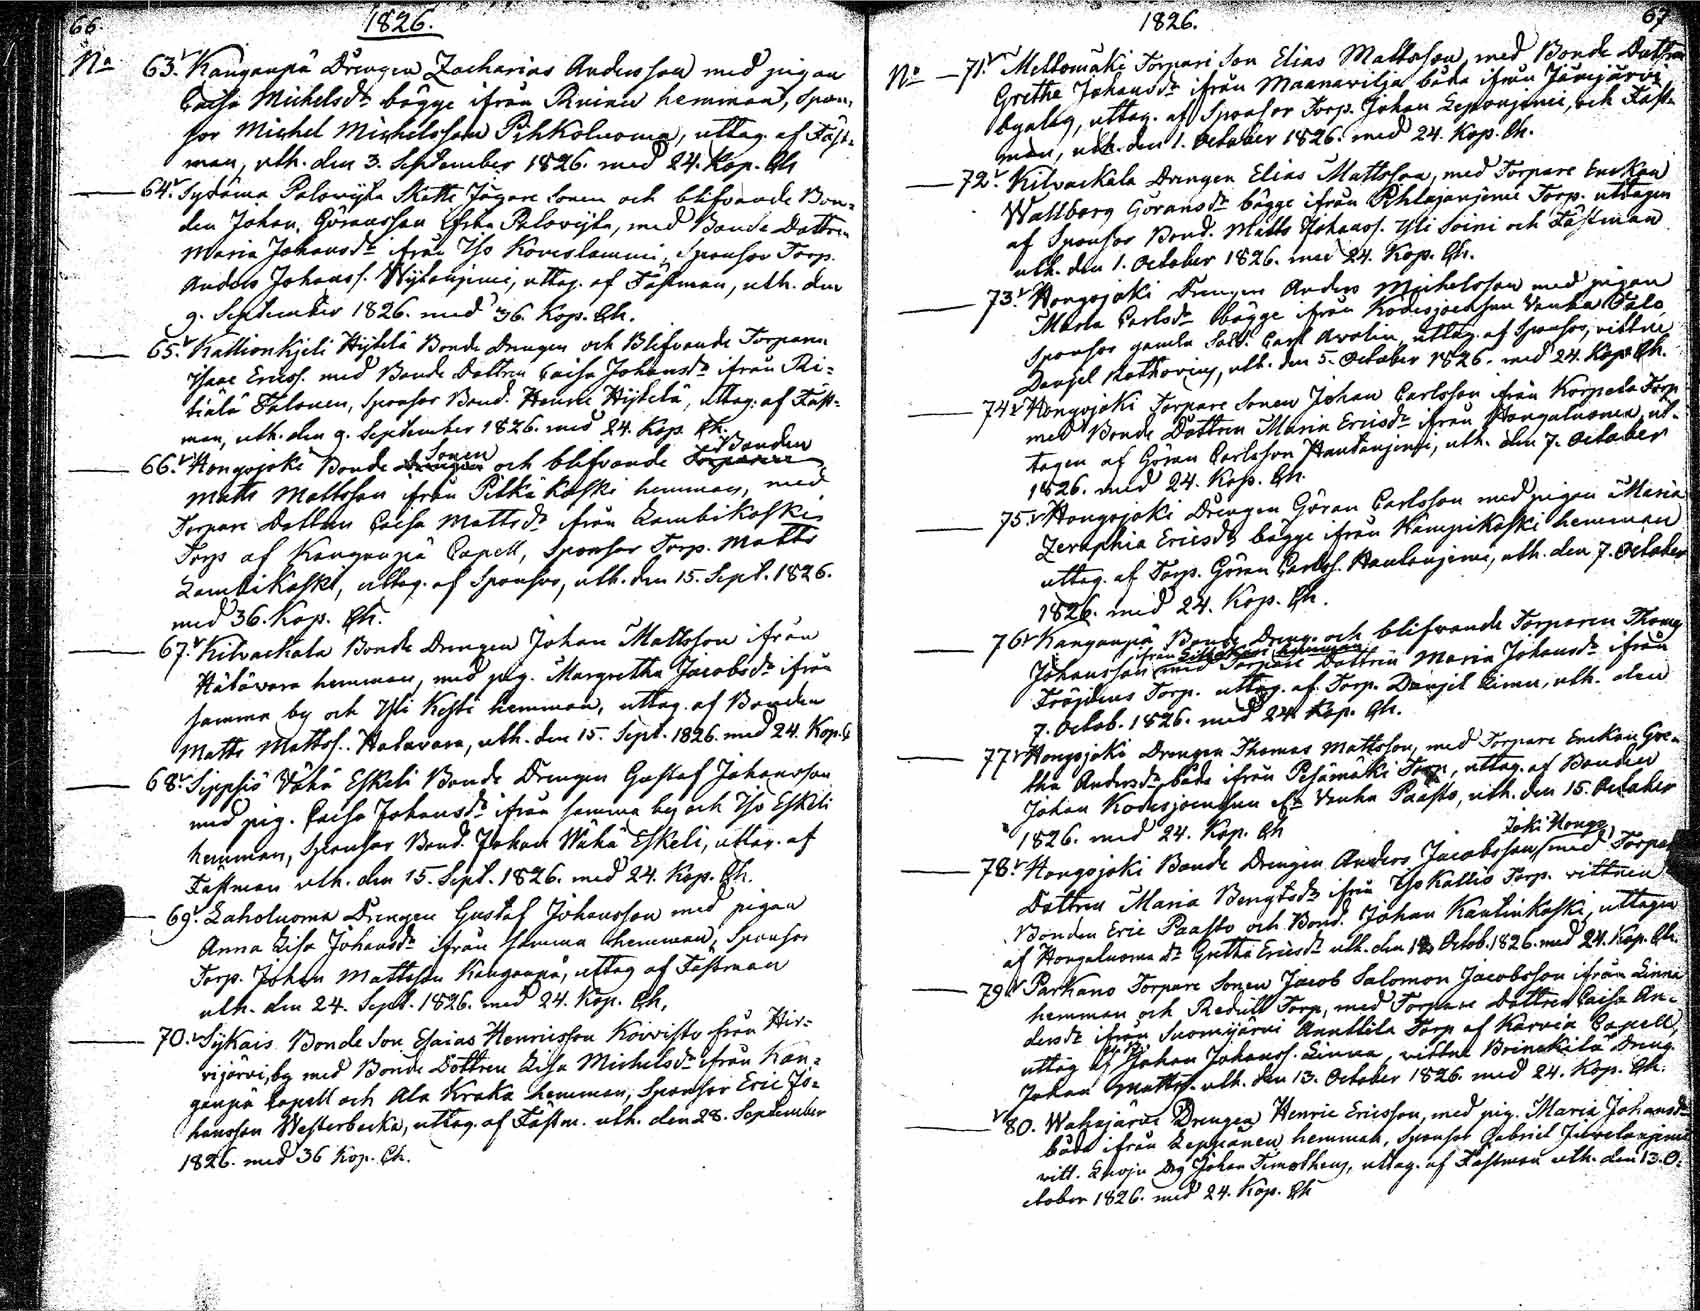 66.
1826.
No 63. Kanganpä Drengen Zacharias Andersson med pigan
Caisa Michelsdr bägge ifrån Ruinen hemman, Spon-
sor Michel Michelsson Pihkoluoma, uttag. af Fäst-
man, uth. den 3. September 1826. med 24. Kop. Ch.
64. Sydäma Palovijta Skatte Jägare Sonen och blifvande Bon-
den Johan Göransson Palovijta, med Bonde Dottren
Maria Johansdr ifrån Iso Koveslammi, Sponsor Torp.
Anders Johanss. uttag. af Fästman, uth. den
9. September 1826. med 36. Kop. Ch.
65. Kallionkjeli Hijtelä Bonde Drengen och Blifvande Torparen
Isaac Ericss. med Bonde Dottren Caisa Johansdr ifrån
Talonen, Sponsor Bond. Henric Hijtelä, uttag. af Fäst-
man, uth. den 9. September 1826. med 24. Kop. Ch.
66. Hongojoki Bonde Drengen Sonen och blifvande Torparen Bonden
Matts Mattsson ifrån Pitkäkoski hemman, med
Torpare Dottren Caisa Mattsdr ifrån Lambikoski
Torp af Kanganpä Capell, Sponsor Torp. Matts
Lambikoski, uttag. af Sponsor, uth. den 15. Sept. 1826.
med 36. Kop. Ch.
67. Kilvackala Bonde Drengen Johan Mattsson ifrån
Hätävara hemman, med pig. Margretha Jacobsdr ifrån
samma by och Yli Kesti hemman, uttag. af Bonden
Matts Mattss. Halavara, uth. den 15. Sept. 1826. med 24. Kop. C
68. Sippiö Vähä Eskeli Bonde Drengen Gustaf Johansson
med pig. Caisa Johansdr ifrån samma by och Iso Eskeli
hemman, Sponsor Bond. Johan Wähä Eskeli, uttag. af
Fästman uth. den 15. Sept. 1826. med 24. Kop. Ch.
69. Laholuoma Drengen Gustaf Johansson med pigan
Anna Lisa Johansdr ifrån samma hemman, Sponsor
Torp. Johan Mattsson Kanganpä, uttag af Fästman
uth. den 24. Sept. 1826. med 24. Kop. Ch.
70. Sykais Bonde Son Esaias Henricsson Koivisto från Hir-
vijärvi by med Bonde Dottren Lisa Michelsdr ifrån Kan-
ganpä Capell och Ala Kraka hemman, Sponsor Eric Jo-
hansson Westerbacka, uttag. af Fästm. uth. den 28. September
1826. med 36 Kop. Ch.
1826.
67
No 71. Mettomäki Torpari Son Elias Mattsson, med Bonde Dottren
Grethe Johansdr ifrån Maanavilja båda ifrån Jämijärvi
byalag, uttag. af Sponsor Torp. Johan Leponjemi, och Fäst-
man, uth. den 1. October 1826. med 24. Kop. Ch.
72. Kilvackala Drengen Elias Mattsson, med Torpare Enckan
Wallborg Göransdr bägge ifrån Torp. uttagen
af Sponsor Bond. Matts Johanss. Yli Soini och Fästman
uth. den 1. October 1826. med 24. Kop. Ch.
73. Hongojoki Drengen Anders Michelsson med pigan
Maria Carlsdr bägge ifrån Kodesjoensun Vanha Talo,
Sponsor gamla Sold. Carl Avolin, uttag. af Sponsor, vittne
Danjel Rothovius, uth. den 5. October 1826. med 24. Kop. Ch.
74. Hongojoki Torpare Sonen Johan Carlsson ifrån Korpela Torp
med Bonde Dottren Maria Ericsdr ifrån Hongoluoma, ut-
tagen af Göran Carlsson Hautanjemi, uth. den 7. October
1826. med 24. Kop. Ch.
75. Hongojoki Drengen Göran Carlsson med pigan Maria
Zeraphia Ericsdr bägge ifrån Kämpikoski hemman
uttag. af Torp. Göran Carlss. Hautanjemi, uth. den 7. October
1826. med 24. Kop. Ch.
76. Kanganpä Bonde Dreng. och blifvande Torparen Thomas
ifrån hemman
Johansson med Torpare Dottren Maria Johansdr ifrån
Fröjdens Torp. uttag. af Torp. Danjel Limn, uth. den
7. Octob. 1826. med 24. Kop. Ch.
77. Hongojoki Drengen Thomas Mattsson, med Torpare Enckan Gre-
tha Andersdr båda ifrån Pesämäki Torp, uttag. af Bonden
Johan Kodesjoensun Vanha Paasto, uth. den 15. October
1826. med 24. Kop. Ch
Joki Hongo
78. Hongojoki Bonde Drengen Anders Jacobsson, med Torpare
Dottren Maria Bengtsdr ifrån Iso Kallio Torp. vittnen
Bonden Eric Paasto och Bond. Johan Kautinkoski, uttagen
af Hongoluoma Dr Gretha Ericsdr uth. den Octob. 1826. med 24. Kop. Ch.
79. Parkano Torpare Sonen Jacob Salomon Jacobsson ifrån Linna
hemman och Torp, med Torpare Dottren Caisa An-
dersdr ifrån Suomijärvi Anttila Torp af Karvia Capell,
uttag af Johan Johanss. Linna, vittne Brinckilä Dreng.
Johan Mattss. uth. den 13. October 1826 med 24. Kop. Ch.
80. Wahojärvi Drengen Henric Ericsson, med pig. Maria Johansdr
båda ifrån Leppänen hemman, Sponsor Gabriel
vitt. Luoju Drg Johan Timotheus, uttag. af Fästman uth. den 13. O-
ctober 1826. med 24. Kop. Ch